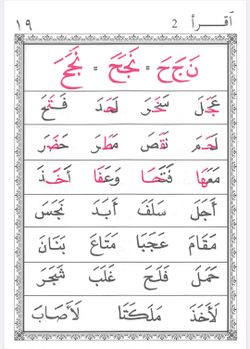 ١٩ اَقْرأ 2
نَجَحَ = نَجَحَ = نَجَحَ
عَجَلَ سَخَرَ لَحَدَ فَتَحَ
لَحَمَ نَقَصَ مَطَرَ حَضَرَ
مَعَهَا فَتَحَا وَعَفَا أَخَذَ
أَجَلَ سَلَفَ أَبَدَ نَجَسَ
مَقَامَ عَجَبَا مَتَاعَ بَنَانَ
حَمَلَ فَلَحَ غَلَبَ شَجَرَ
لَأَخَذَ مَلَكَتَا لَأَصَابَ